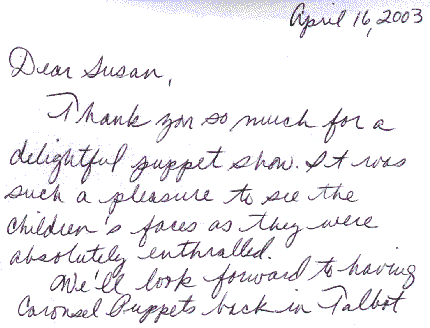 April 16, 2003
Dear Susan,
Thank you so much for a
delightful puppet show. It was
such a pleasure to see the
children's faces as they were
absolutely enthralled.
We'll look forward to having
Carousel Puppets back in Talbot